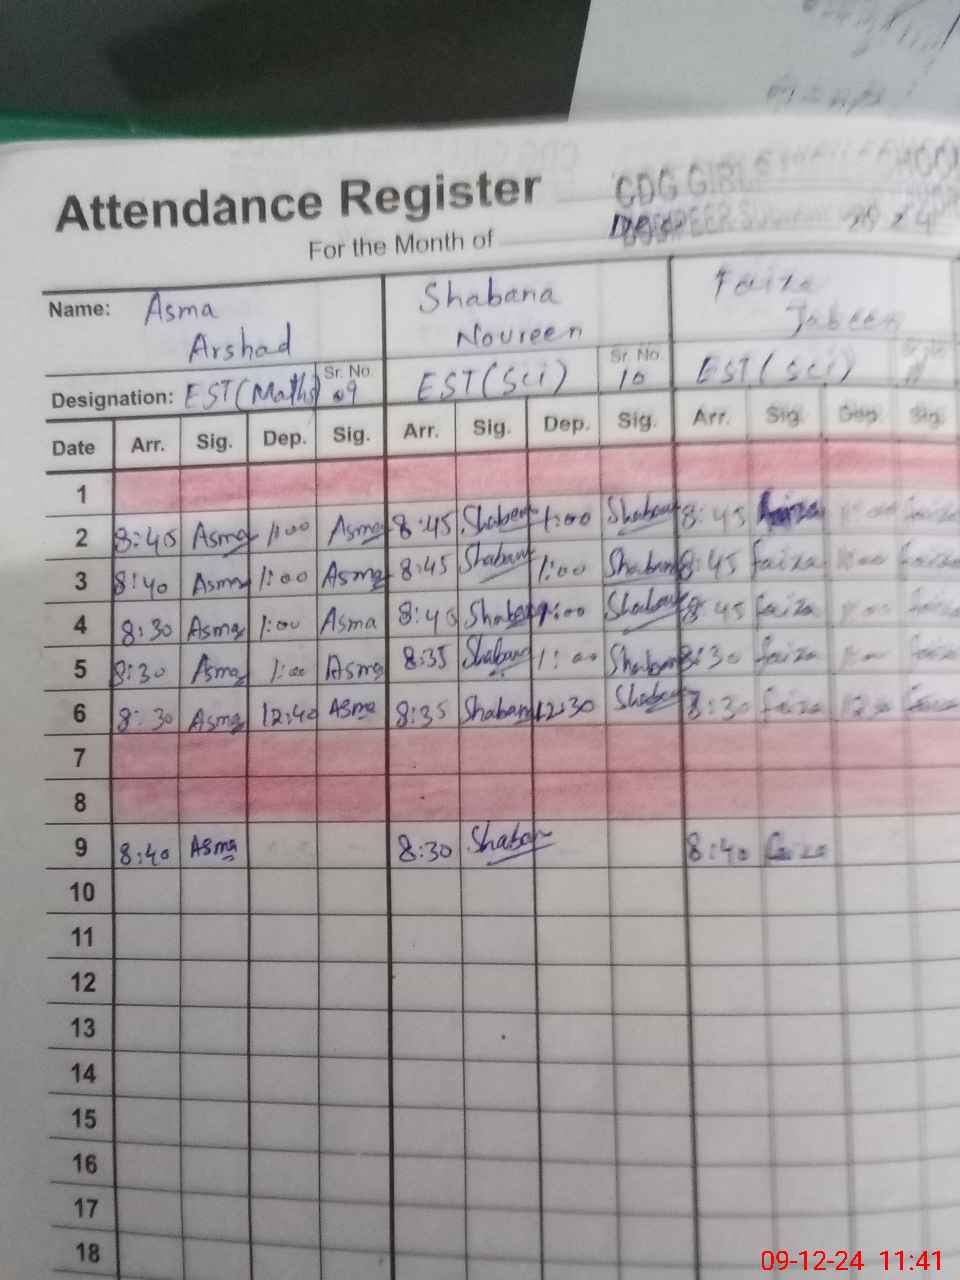 Attendance Register
CDG GIRLS
For the Month of
Name: Asma Arshad Shabana Noureen Faiza Jabeen
Designation: EST (Maths) Sr. No. 09 EST (Sci) Sr. No 10 EST (Sci)
Date Arr. Sig. Dep. Sig. Arr. Sig. Dep. Sig. Arr. Sig. Dep. Sig.
1
2 8:45 Asma 1:00 Asma 8:45 Shabana 1:00 Shabana 8:45 Faiza
3 8:40 Asma 1:00 Asma 8:45 Shabana 1:00 Shabana 8:45 Faiza
4 8:30 Asma 1:00 Asma 8:45 Shabana 1:00 Shabana 8:45 Faiza
5 8:30 Asma 1:00 Asma 8:35 Shabana 1:00 Shabana 8:30 Faiza
6 8:30 Asma 12:40 Asma 8:35 Shabana 12:30 Shabana 8:30 Faiza
7
8
9 8:40 Asma 8:30 Shabana 8:40 Faiza
10
11
12
13
14
15
16
17
18
09-12-24 11:41